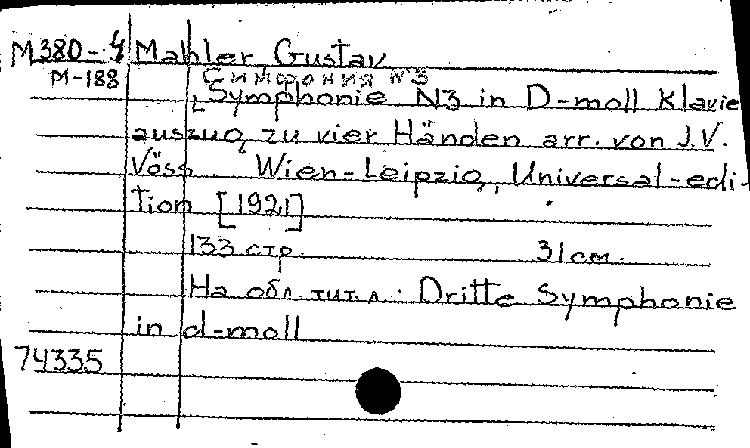 М380-4 Mahler, Gustav
М-188 Симфония N3
[Symphonie N3 in D-moll Klavie
auszug zu vier Händen arr. von J.V.
Vöss Wien-Leipzig, Universal-edi-
tion [1921]
133 стр. 31 см.
На обл. тит. л.: Dritte Symphonie
in d-moll
74335